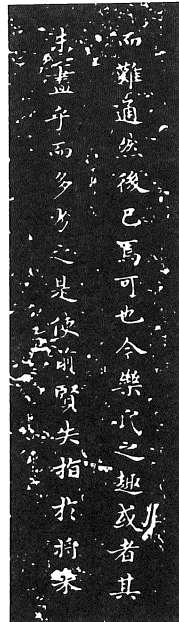 而難通然後已焉可也今樂氏之趣或者其
未盡乎而多劣之是使前賢失指於將來